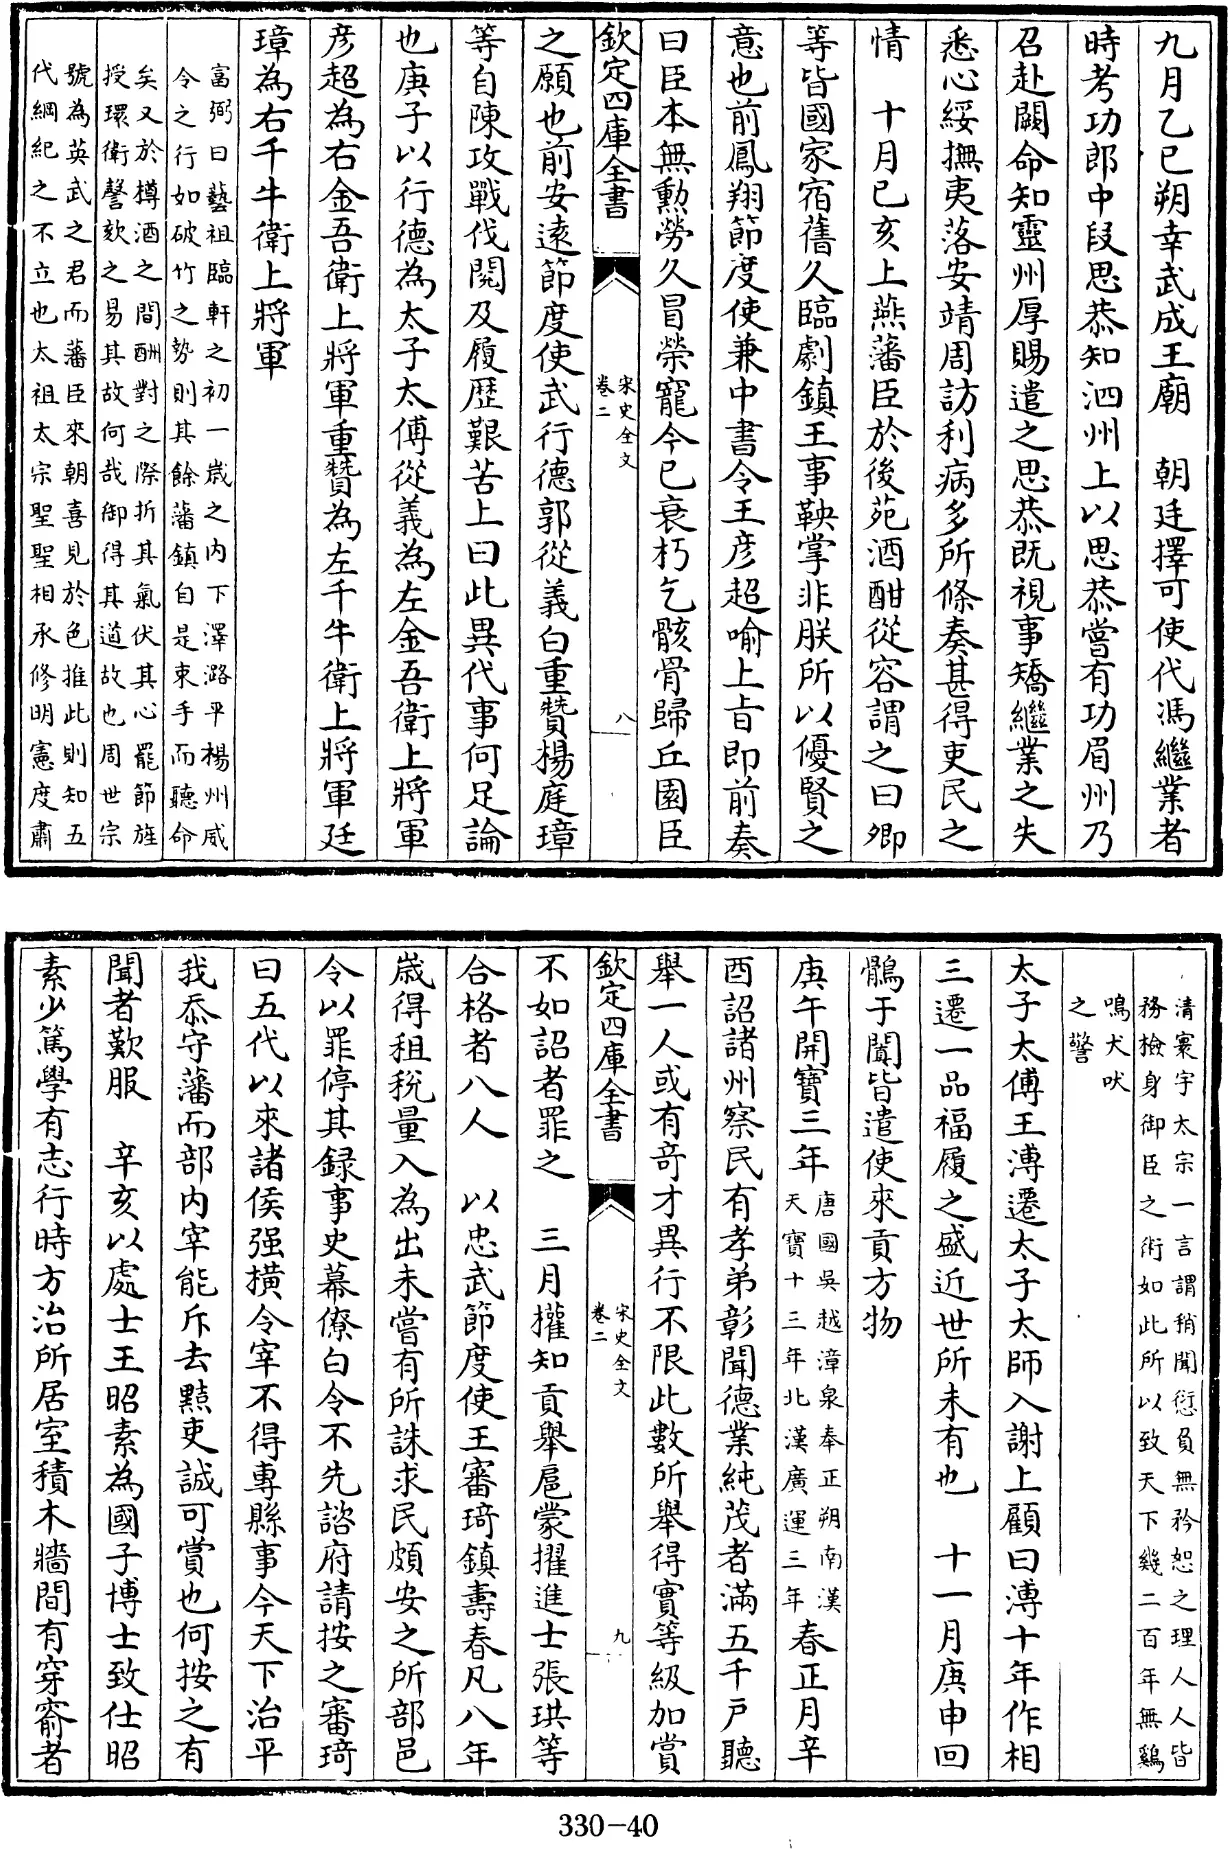 九月乙巳朔幸武成王廟　朝廷擇可使代馮繼業者
時考功郎中段思恭知泗州上以思恭嘗有功眉州乃
召赴闕命知靈州厚賜遣之思恭既視事矯繼業之失
悉心綏撫夷落安靖周訪利病多所條奏甚得吏民之
情　十月已亥上燕藩臣於後苑酒酣從容謂之曰卿
等皆國家宿舊久臨劇鎮王事鞅掌非朕所以優賢之
意也前鳳翔節度使兼中書令王彦超喻上㫖即前奏
曰臣本無勲勞久冒榮寵今已衰朽乞骸骨歸丘園臣
欽定四庫全書
宋史全文
卷二
八
之願也前安逺節度使武行德郭從義白重贊楊庭璋
等自陳攻戰伐閱及履歴艱苦上曰此異代事何足論
也庚子以行德為太子太傅從義為左金吾衛上將軍
彦超為右金吾衛上將軍重贊為左千牛衛上將軍廷
璋為右千牛衛上將軍
富弼曰藝祖臨軒之初一歳之内下澤潞平楊州威
令之行如破竹之勢則其餘藩鎮自是束手而聽命
矣又於樽酒之間酬對之際折其氣伏其心罷節旌
授環衛謦欬之易其故何哉御得其道故也周世宗
號為英武之君而藩臣來朝喜見於色推此則知五
代綱紀之不立也太祖太宗聖聖相承修明憲度肅
清寰宇太宗一言謂稍聞愆負無矜恕之理人人皆
務檢身御臣之術如此所以致天下幾二百年無鷄
鳴犬吠
之警
太子太傅王溥遷太子太師入謝上顧曰溥十年作相
三遷一品福履之盛近世所未有也　十一月庚申回
鶻于闐皆遣使來貢方物
庚午開寶三年
唐國吳越漳泉奉正朔南漢
天寶十三年北漢廣運三年
春正月辛
酉詔諸州察民有孝弟彰聞德業純茂者滿五千戸聽
舉一人或有竒才異行不限此數所舉得實等級加賞
欽定四庫全書
宋史全文
卷二
九
不如詔者罪之　三月權知貢舉扈蒙擢進士張珙等
合格者八人　以忠武節度使王審琦鎮壽春凡八年
歳得租稅量入為出未嘗有所誅求民頗安之所部邑
令以罪停其録事史幕僚白令不先諮府請按之審琦
曰五代以來諸侯强横令宰不得專縣事今天下治平
我忝守藩而部内宰能斥去黠吏誠可賞也何按之有
聞者歎服　辛亥以處士王昭素為國子博士致仕昭
素少篤學有志行時方治所居室積木牆間有穿窬者
330-40